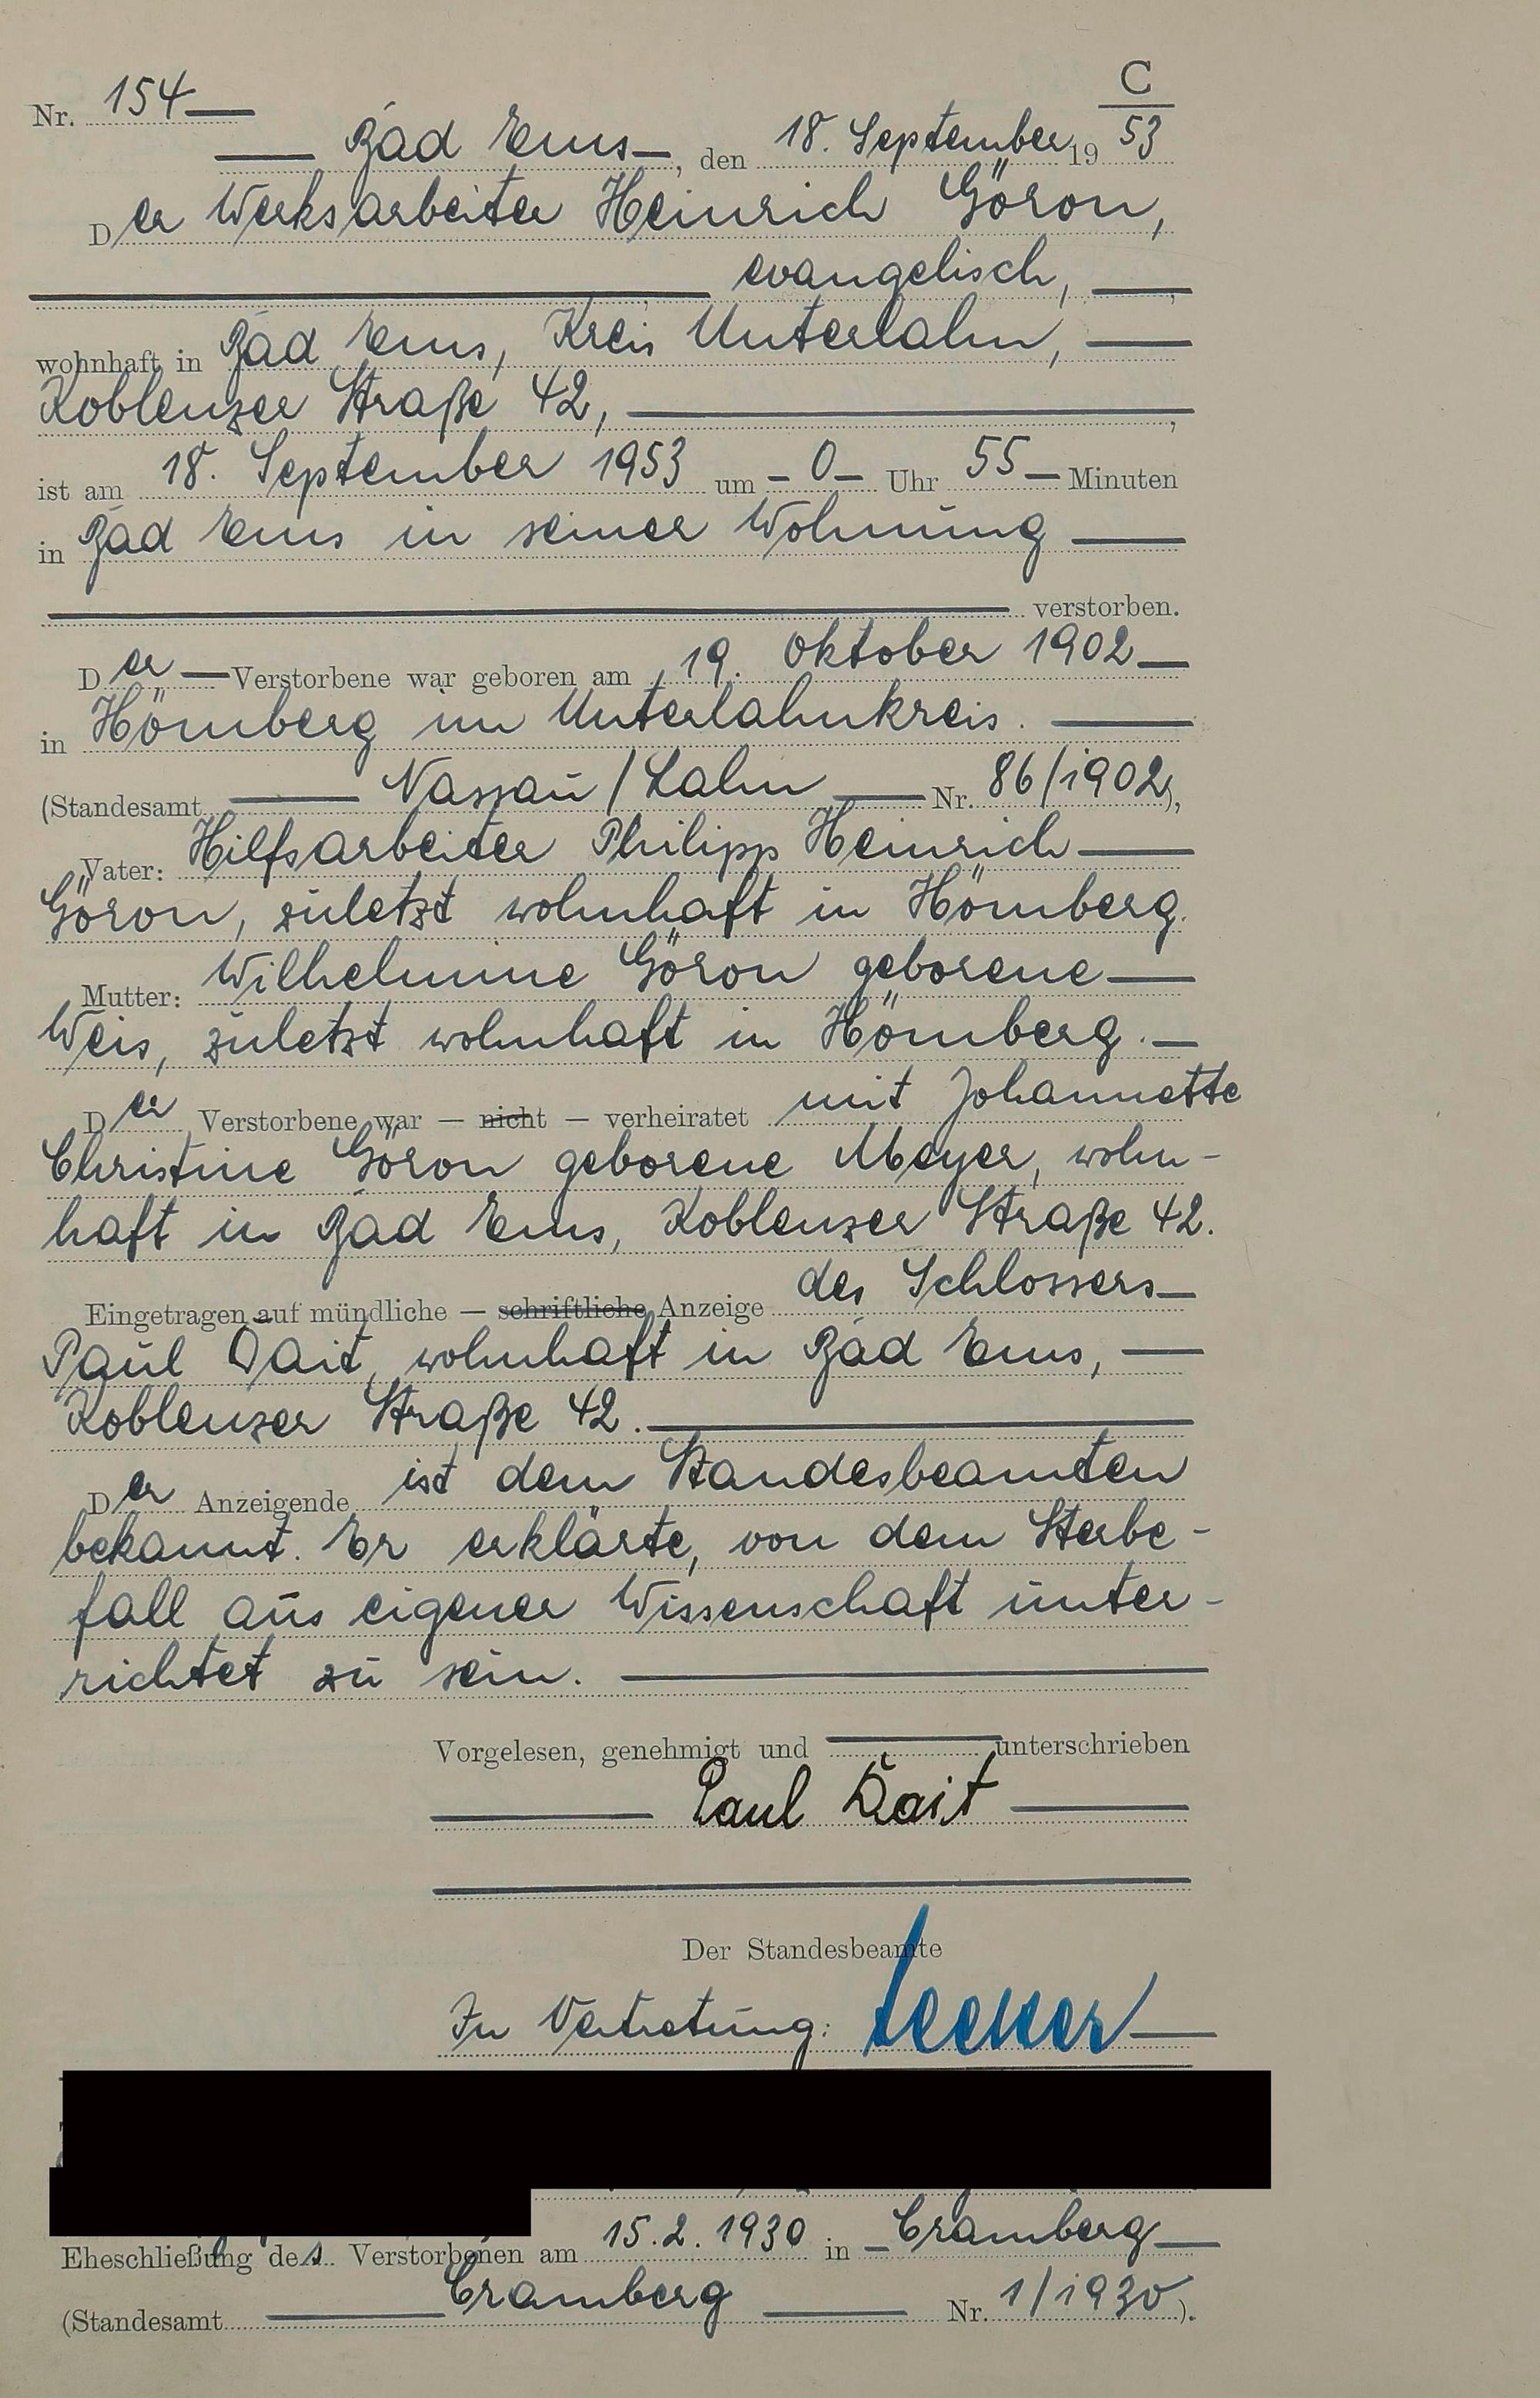 C
Nr. 154
Bad Ems, den 18. September 1953
Der Werksarbeiter Heinrich Göron,
evangelisch,
wohnhaft in Bad Ems, Kreis Unterlahn,
Koblenzer Straße 42,
ist am 18. September 1953 um - 0 - Uhr 55 Minuten
in Bad Ems in seiner Wohnung
verstorben.
Der Verstorbene war geboren am 19. Oktober 1902
in Hömberg im Unterlahnkreis.
(Standesamt Nassau / Lahn Nr. 86/1902),
Vater: Hilfsarbeiter Philipp Heinrich
Göron, zuletzt wohnhaft in Hömberg.
Mutter: Wilhelmine Göron geborene
Weis, zuletzt wohnhaft in Hömberg.
Der Verstorbene war — nicht — verheiratet mit Johannette
Christine Göron geborene Meyer, wohn-
haft in Bad Ems, Koblenzer Straße 42.
Eingetragen auf mündliche — schriftliche Anzeige des Schlossers
Paul, wohnhaft in Bad Ems,
Koblenzer Straße 42.
Der Anzeigende ist dem Standesbeamten
bekannt. Er erklärte, von dem Sterbe-
fall aus eigener Wissenschaft unter-
richtet zu sein.
Vorgelesen, genehmigt und unterschrieben
Paul
Der Standesbeamte
In Vertretung:
Eheschließung des Verstorbenen am 15.2.1930 in Cramberg
(Standesamt Cramberg Nr. 1/1930).